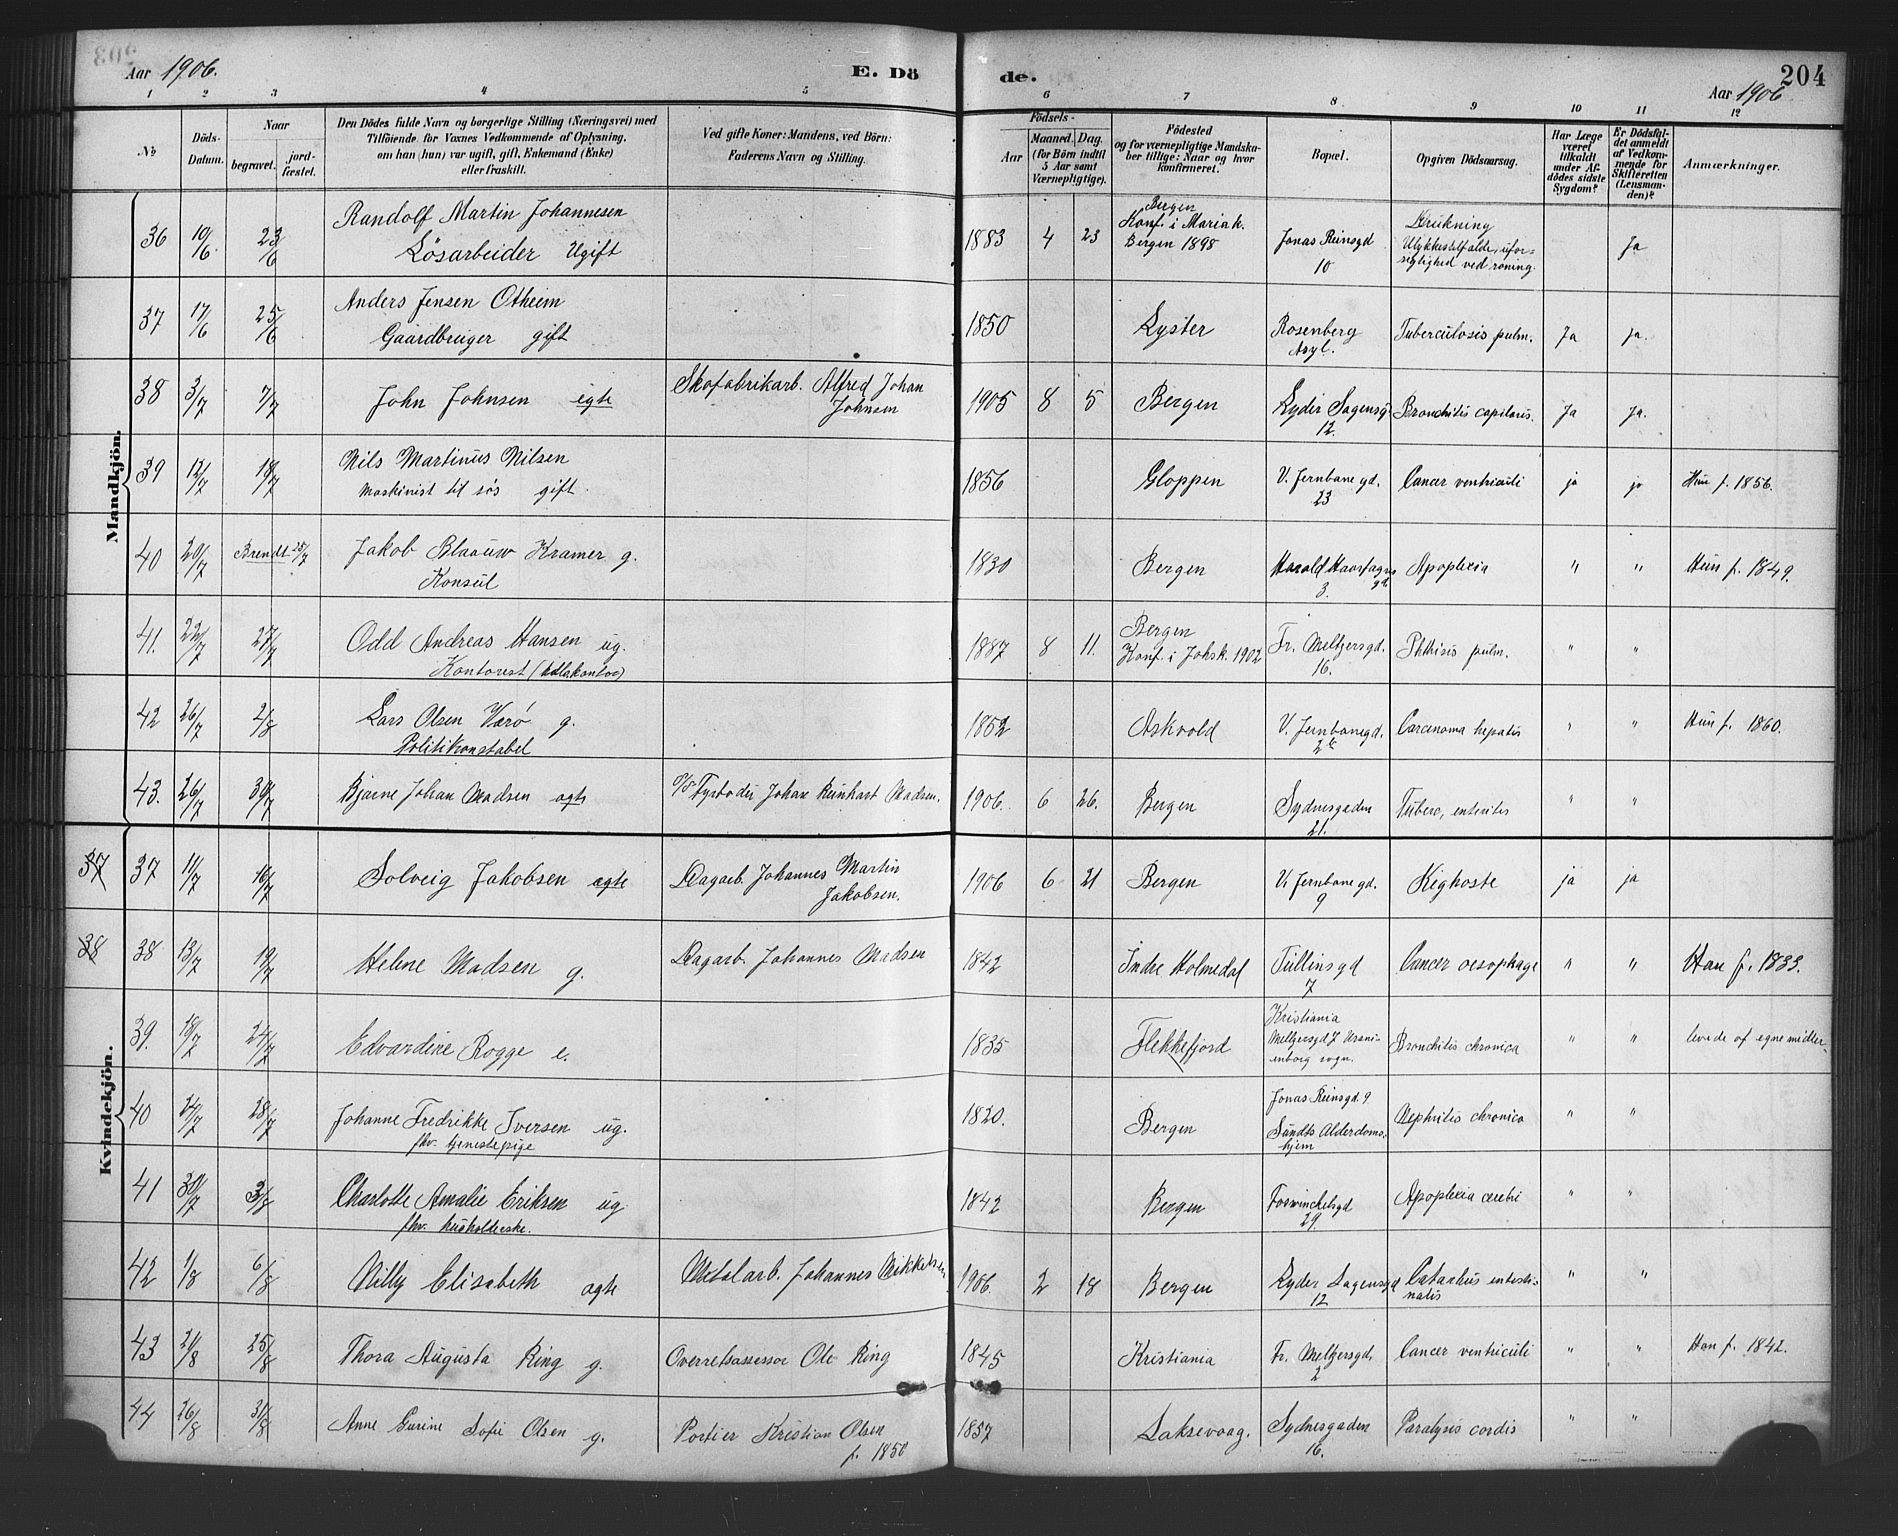 Aar 1906.
E. Dö
de.
204
Aar 1906
1 2 3 4 5 6 7 8 9 10 11 12
No
Döds-Datum.
Naar
begravet.
jord-fæstet.
Den Dödes fulde Navn og borgerlige Stilling (Næringsvei) med
Tilföiende for Voxnes Vedkommende af Oplysning,
om han (hun) var ugift, gift, Enkemand (Enke)
eller fraskilt.
Ved gifte Koner: Mandens, ved Börn:
Faderens Navn og Stilling.
Födsels-
Aar
Maaned. Dag.
(for Börn indtil
5 Aar samt
Værnepligtige).
Födested
og for værnepligtige Mandska-
ber tillige: Naar og hvor
konfirmeret.
Bopæl.
Opgiven Dödsaarsag.
Har Læge
været
tilkaldt
under Af-
dödes sidste
Sygdom?
Er Dödsfal-
det anmeldt
af Vedkom-
mende for
Skifteretten
(Lensman-
den)?
Anmærkninger.
Mandkjön.
36 10/6 23/6 Randolf Martin Johannesen
Lösarbeider Ugift
1883 4 23 Bergen
Konf. i Mariak.
Bergen 1898
Jonas Reinsgd
10
Drukning
Ulykkestilfælde, ufor-
sigtighed ved roning.
Ja
37 17/6 25/6 Anders Jensen Otheim
Gaardbruger gift
1850 Lyster Rosenberg
Asyl.
Tuberculosis pulm. Ja ja.
38 3/7 7/7 John Johnsen egte
Skofabrikarb. Alfred Johan
Johnsen
1905 8 5 Bergen Lyder Sagensg.
12.
Bronchitis capilaris. Ja Ja.
39 12/7 18/7 Nils Martinus Nilsen
Maskinist til sös gift.
1856 Gloppen V. Jernbanegd.
23
Cancer ventriculi ja ja Hun f. 1856.
40 20/7 Brendt 25/7 Jakob Blaauw Kramer g.
Konsul
1830 Bergen Harald Haarfagres
gd.
3.
Apoplexia " " Hun f. 1849.
41. 22/7 27/7 Odd Andreas Hansen ug.
Kontorist
1887 8 11. Bergen
Konf. i Johsk. 1902
Fr. Meltzersgd.
16.
Phthisis pulm. " "
42 26/7 2/8 Lars Olsen Værö g.
Politikonstabel
1852 Askvold V. Jernbanegd.
Carcinoma hepatis " " Hun f. 1860.
43. 26/7 30/7 Bjarne Johan Madsen ægte
Fyrböder Johan Reinhart Madsen.
1906. 6 26. Bergen Sydnesgaden
21.
Tuberc, enteritis " "
Kvindekjön.
37 37 11/7 16/7 Solveig Jakobsen ægte
Dagarb. Johannes Martin
Jakobsen.
1906 6 21 Bergen V. Jernbanegd.
9
Kighoste ja ja
38 38 13/7 19/7 Helene Madsen g.
Dagarb. Johannes Madsen
1842 Indre Holmedal Tullinsgd
7
Cancer oesophage " " Han f. 1833.
39. 18/7 24/7 Edvardine Rogge e.
1835 Flekkefjord Kristiania
Meltzersgd 7 Urani-
enborg sogn.
Bronchitis chronica " " levede af egne midler.
40 24/7 28/7 Johanne Fredrikke Iversen ug.
fhv. tjenestepige
1820. Bergen Jonas Reinsgd. 9
Sundts Alderdoms-
hjem
Nephritis chronica " "
41 30/7 3/8 Charlotte Amalie Eriksen ug
fhv. husholderske.
1842 Bergen Foswinckelsgd
29.
Apoplexia cerebri " "
42 1/8 6/8 Nilly Elisabeth ægte
Metalarb. Johannes Mikkelsen
1906. 2 18 Bergen Lyder Sagensgd
12
Catarrhus intesti-
nalis
" "
43 21/8 25/8 Thora Augusta Ring g.
Overretsassessor Ole Ring
1845 Kristiania Fr. Meltzersgd.
2
Cancer ventriculi " " Han f. 1842.
44 26/8 31/8 Anne Gurine Sofie Olsen g.
Portier Kristian Olsen
f. 1850
1857 Laksevaag. Sydnesgaden
16.
Paralysis cordis " "